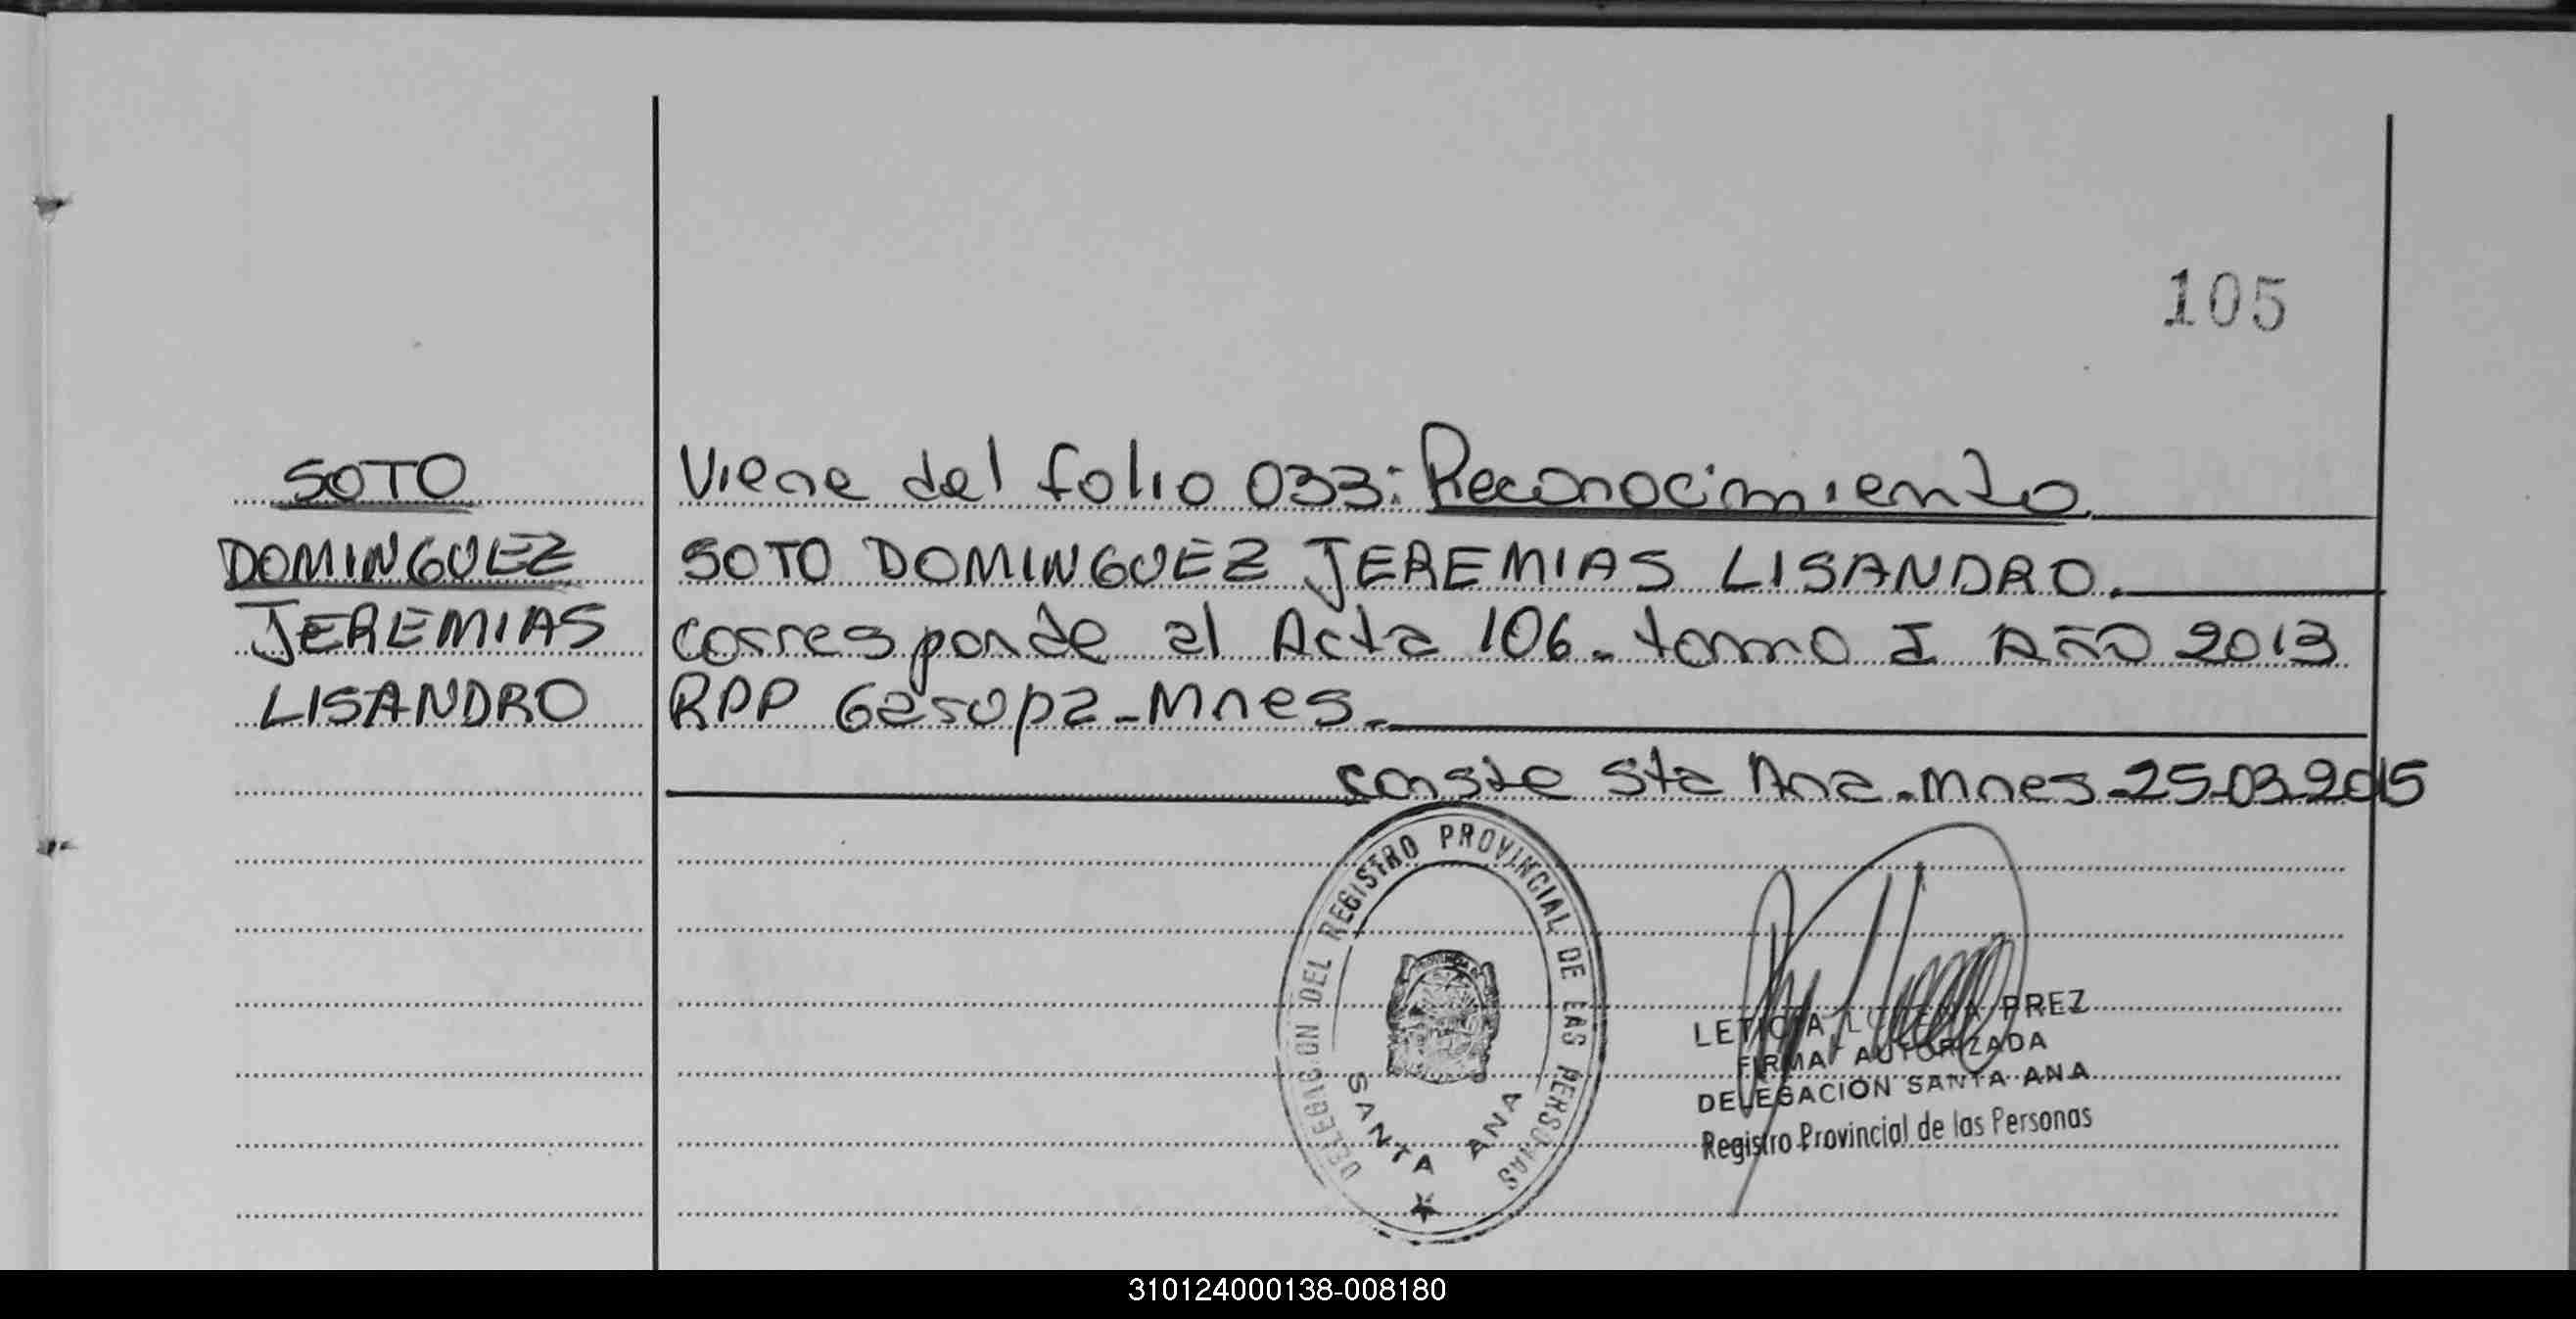 105
SOTO
DOMINGUEZ
JEREMIAS
LISANDRO
Viene del folio 033: Reconocimiento
SOTO DOMINGUEZ JEREMIAS LISANDRO.
corresponde al Acta 106. tomo I AÑO 2013
RPP Garupa - Mnes.
conste Sta Ana. Mnes. 25.03.2015
DELEGACION DEL REGISTRO PROVINCIAL DE LAS PERSONAS
SANTA ANA
LETICIA PREZ
FIRMA AUTORIZADA
DELEGACION SANTA ANA
Registro Provincial de las Personas
310124000138-008180